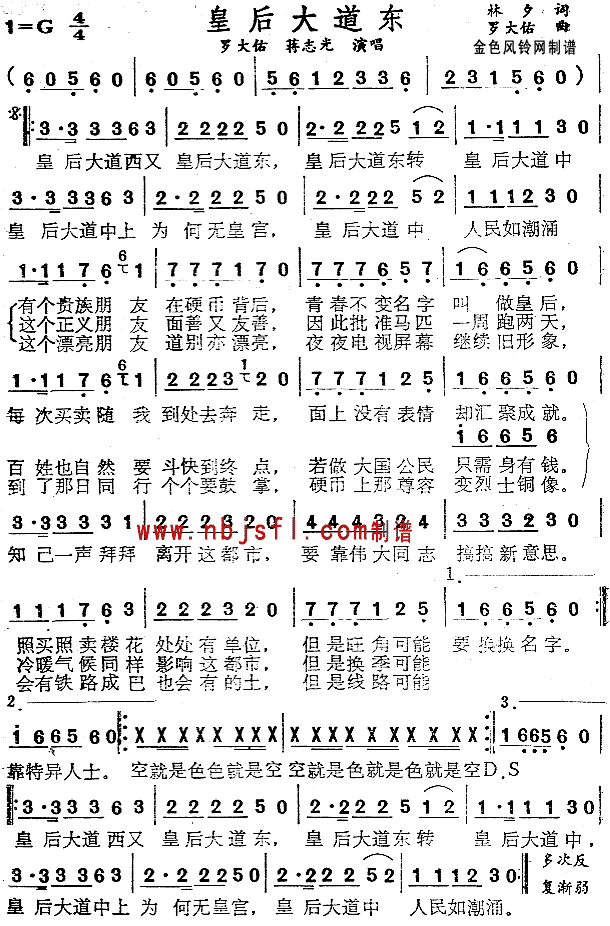 皇后大道东
1=G 4/4
林夕 词
罗大佑 曲
罗大佑 蒋志光 演唱
金色风铃网制谱
(60560 | 60560 | 5612336 | 231560)
3·333363 | 2222250 | 2·22225 12 | 1·11130
皇后大道西又 皇后大道东, 皇后大道东转 皇后大道中
3·33363 | 2·222250 | 2·222252 | 111230
皇后大道中上 为何无皇宫, 皇后大道中 人民如潮涌
1·1176 61 | 7771170 | 7777657 | 166560
有个贵族朋友 在硬币背后, 青春不变名字 叫做皇后,
这个正义朋友 面善又友善, 因此批准马匹 一周跑两天,
这个漂亮朋友 道别亦漂亮, 夜夜电视屏幕 继续旧形象,
1·1176 61 | 222320 | 7777125 | 166560
每次买卖随我 到处去奔走, 面上没有表情 却汇聚成就。
16656
百姓也自然要 斗快到终点, 若做大国公民 只需身有钱。
到了那日同行 个个要鼓掌, 硬币上那尊容 变烈士铜像。
3·333331 | 2222320 | 4444324 | 3333230
www.nbjsfl.com制谱
知己一声拜拜 离开这都市, 要靠伟大同志 搞搞新意思。
1.
111763 | 222320 | 7777125 | 166560
照买照卖楼花 处处有单位, 但是旺角可能 要换换名字。
冷暖气候同样 影响这都市, 但是换季可能
会有铁路成巴 也会有的土, 但是线路可能
2.
3.
166560 XXXX XXX | XXXXXXXX | 166560
靠特异人士。 空就是色色就是空空就是色就是色就是空D.S
3·333363 | 2222250 | 2·22225 12 | 1·11130
皇后大道西又 皇后大道东, 皇后大道东转 皇后大道中,
3·333363 | 2·222250 | 2·222252 | 111230
多次反
复渐弱
皇后大道中上 为何无皇宫, 皇后大道中 人民如潮涌。